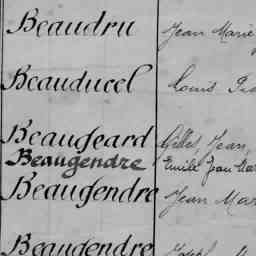 Beaudru Jean Marie
Beauducel Louis
Beaugeard Gilles Jean
Beaugendre Emile Jean Mar
Beaugendre Jean Mar
Beaugendre Joseph